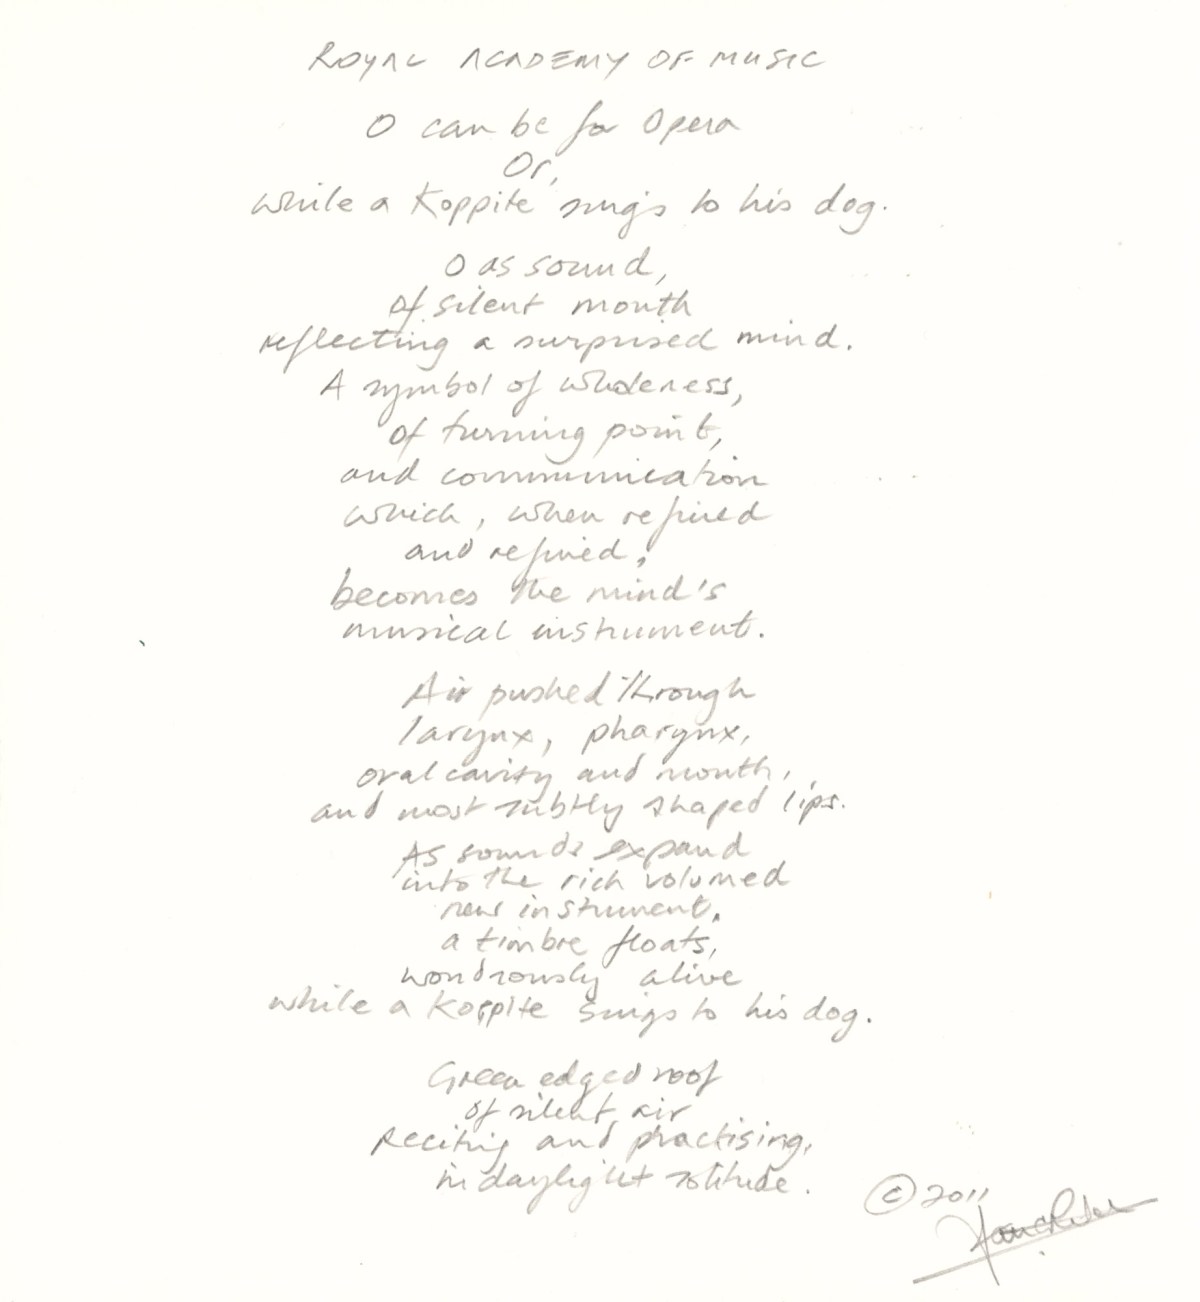 ROYAL ACADEMY OF MUSIC
O can be for Opera
Or,
while a Koppite sings to his dog.
O as sound,
of silent mouth
reflecting a surprised mind.
A symbol of wholeness,
of turning point,
and communication
which, when refined
and refined,
becomes the mind's
musical instrument.
Air pushed through
larynx, pharynx,
oral cavity and mouth,
and most subtly shaped lips.
As sounds expand
into the rich volumed
new instrument,
a timbre floats,
wondrously alive
while a Koppite sings to his dog.
Green edged roof
of silent air
reciting and practising,
in daylight solitude.
© 2011